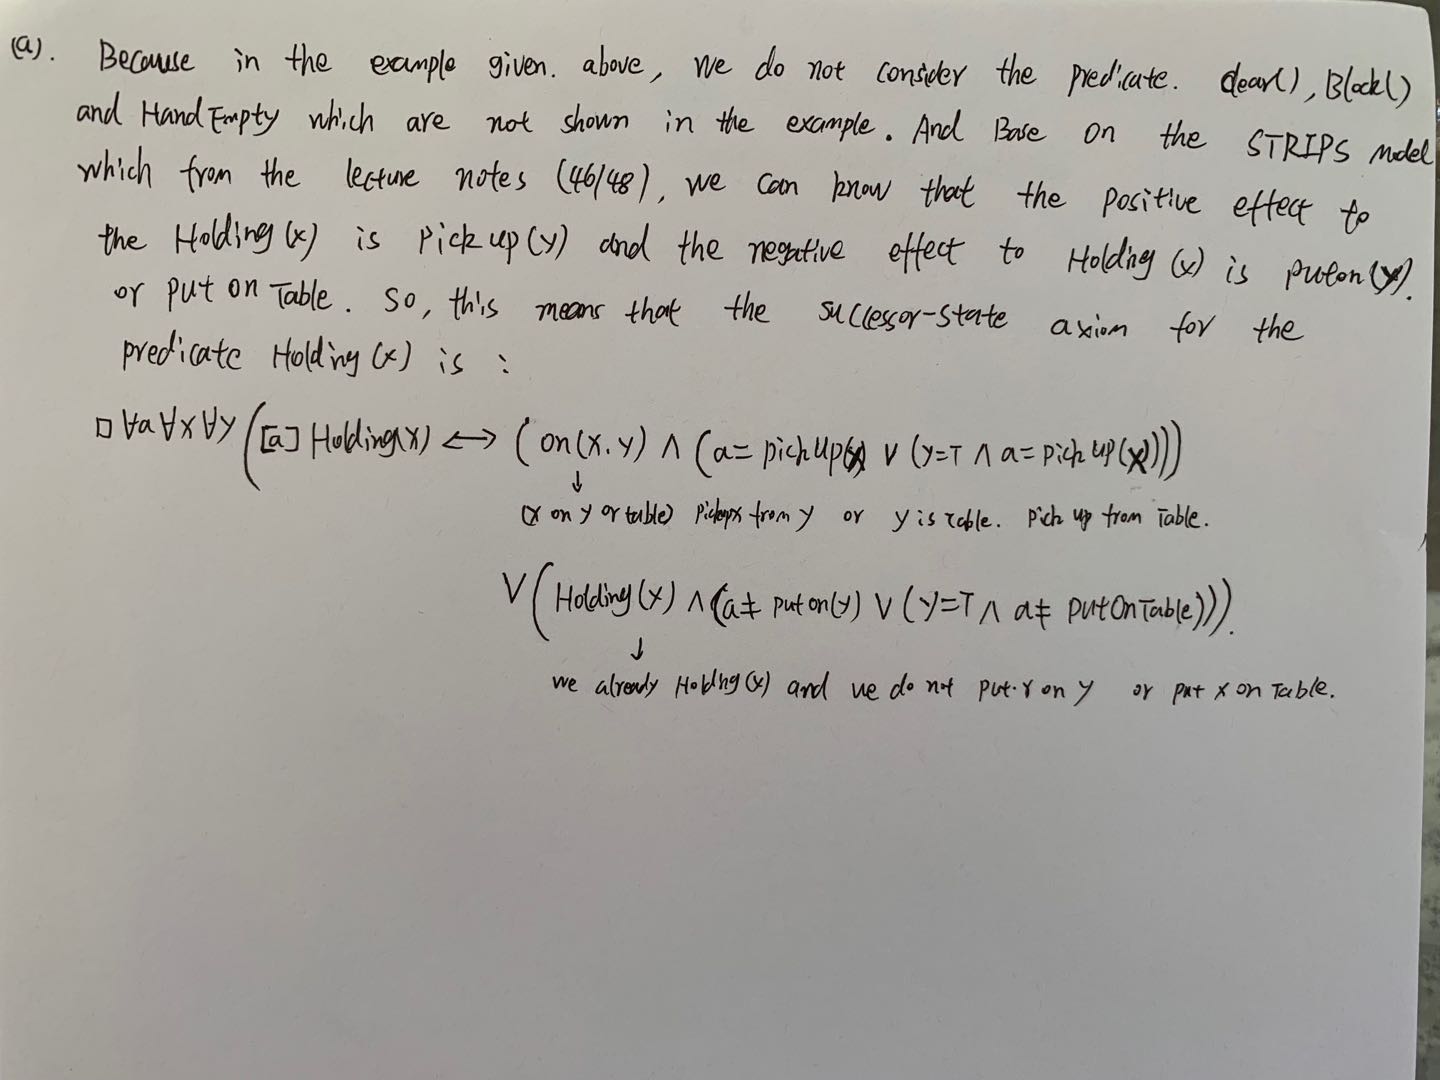 (a). Because in the example given. above, we do not consider the predicate. clear(), Block()
and HandEmpty which are not shown in the example. And Base on the STRIPS model
which from the lecture notes (46/48), we can know that the positive effect to
the Holding(x) is Pick up(y) and the negative effect to Holding (x) is puton(y).
or put on Table. So, this means that the successor-state axiom for the
predicate Holding(x) is :
□ ∀a ∀x ∀y ([a] Holding(x) ↔ (on(x.y) ∧ (a= pick up(x) ∨ (y=T ∧ a= pick up(x))))
↓ ↓
(x on y or table) Pickup x from y or y is table. Pick up from Table.
∨ (Holding(x) ∧ (a≠ put on(y) ∨ (y=T ∧ a≠ putOnTable))).
↓
we already Holdng(x) and we do not put x on y or put x on Table.